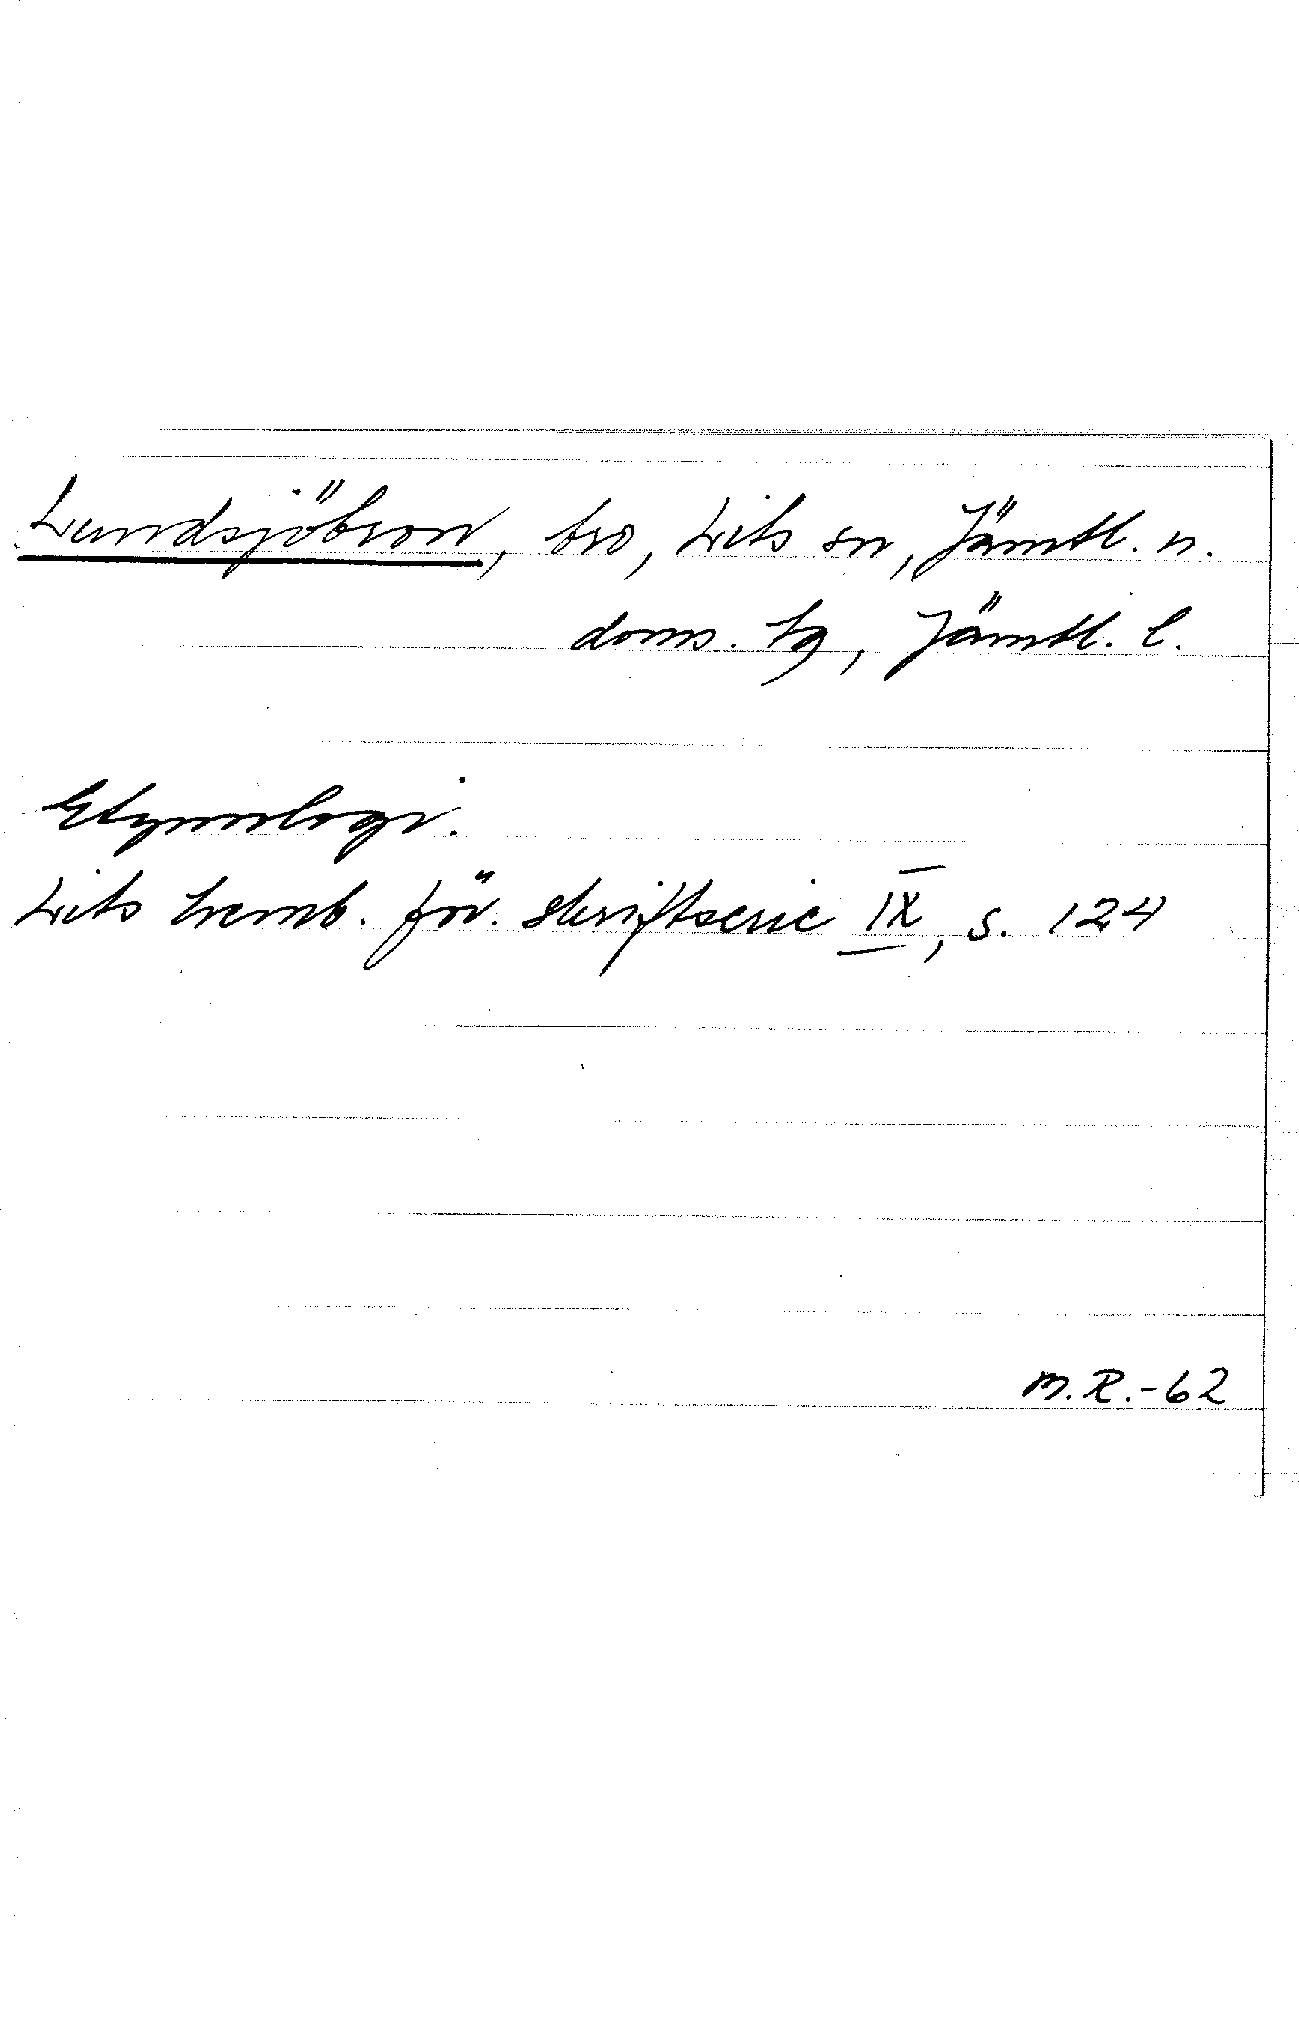 Lundsjöbron, bro, Lits sn, Jämtl. n.
doms. tg, Jämtl. l.
Etymologi.
Lits hemb. för. skriftserie IX, s. 124
M.R.-62